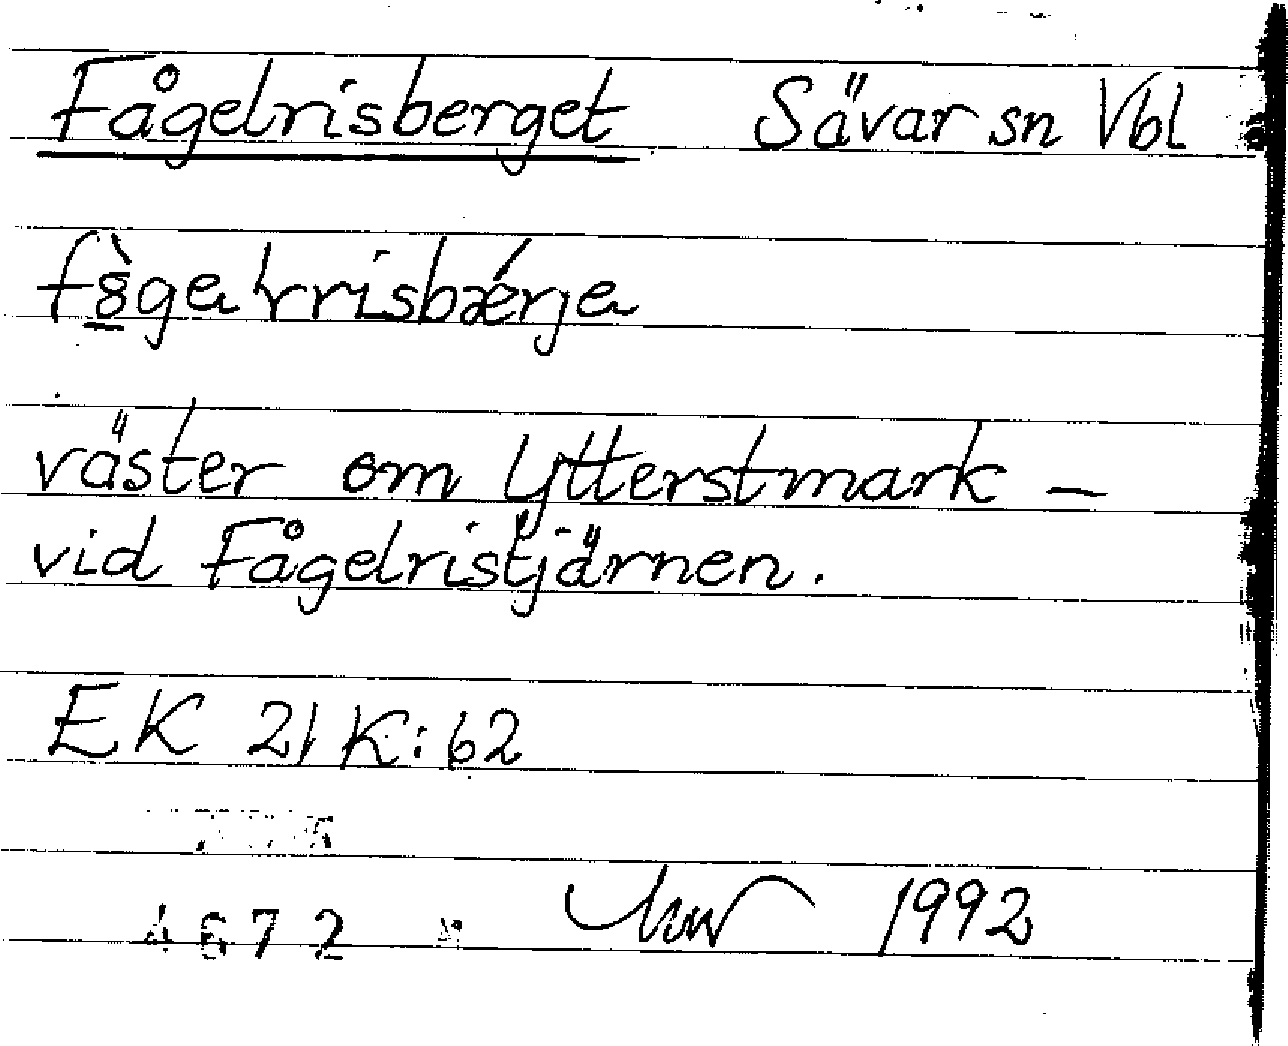 Fågelrisberget Sävar sn Vbl
väster om Ytterstmark –
vid Fågelristjärnen.
EK 21K:62
4672 1992